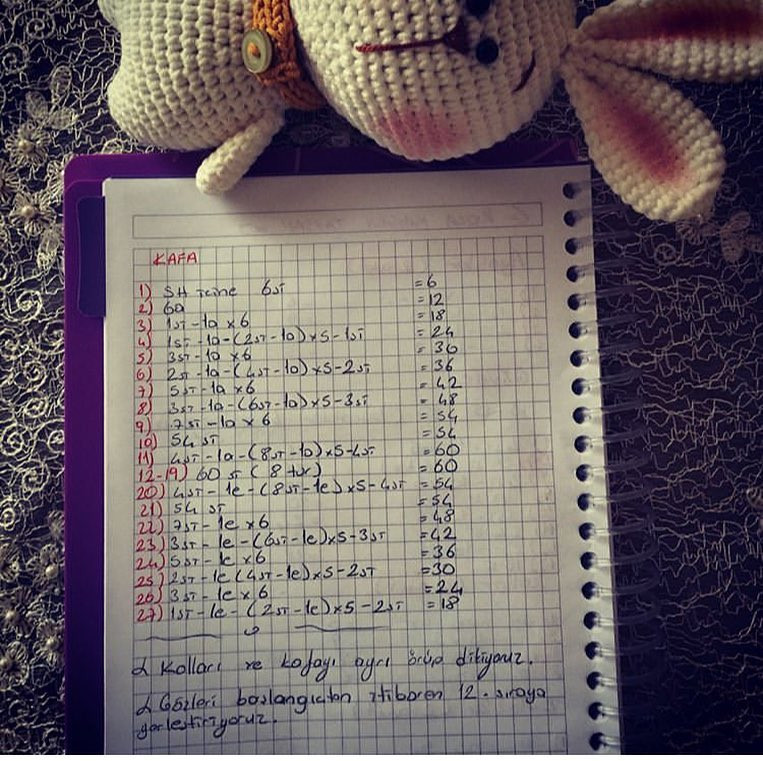 KAFA
1) SH içine 6sı =6
2) 6a =12
3) 1sı - 1a x 6 =18
4) 1sı - 1a - (2sı - 1a) x 5 - 1sı =24
5) 3sı - 1a x 6 =30
6) 2sı - 1a - (4sı - 1a) x 5 - 2sı =36
7) 5sı - 1a x 6 =42
8) 3sı - 1a - (6sı - 1a) x 5 - 3sı =48
9) 7sı - 1a x 6 =54
10) 54 sı =54
11) 4sı - 1a - (8sı - 1a) x 5 - 4sı =60
12-19) 60 sı (8 tur) =60
20) 4sı - 1e - (8sı - 1e) x 5 - 4sı =54
21) 54 sı =54
22) 7sı - 1e x 6 =48
23) 3sı - 1e - (6sı - 1e) x 5 - 3sı =42
24) 5sı - 1e x 6 =36
25) 2sı - 1e (4sı - 1e) x 5 - 2sı =30
26) 3sı - 1e x 6 =24
27) 1sı - 1e - (2sı - 1e) x 5 - 2sı =18
Kolları ve kafayı ayrı örüp dikiyoruz.
Gözleri başlangıçtan itibaren 12. sıraya
yerleştiriyoruz.